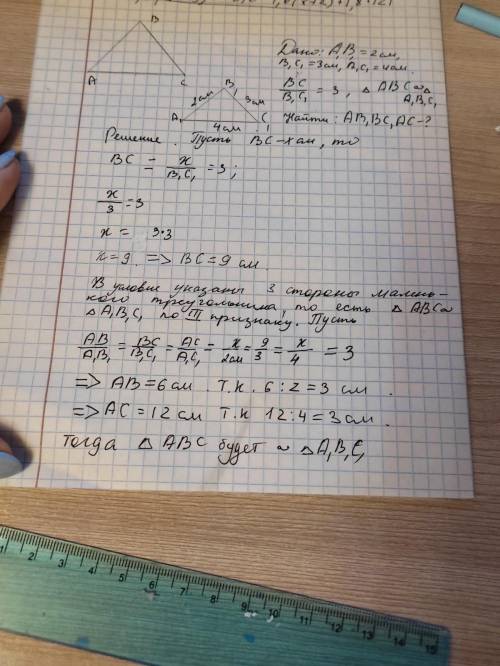 B
A
C
Дано: A₁B₁=2см,
B₁C₁=3см, A₁C₁=4см.
BC/B₁C₁ = 3, △ABC ~ △A₁B₁C₁
Найти: AB, BC, AC-?
B₁
2см
3см
A₁
C₁
4см
Решение. Пусть BC-xсм, то
BC = x/B₁C₁ = 3;
x/3 = 3
x = 3·3
x=9. => BC=9 см.
В условие указаны 3 стороны малень-
кого треугольника, то есть △ABC~
△A₁B₁C₁ по III признаку. Пусть
AB/A₁B₁ = BC/B₁C₁ = AC/A₁C₁ = x/2см = 9/3 = x/4 = 3
=> AB=6см. т.к. 6:2=3 см.
=> AC=12см т.к 12:4=3см.
тогда △ABC будет ~ △A₁B₁C₁
1 2 3 4 5 6 7 8 9 10 11 12 13 14 15